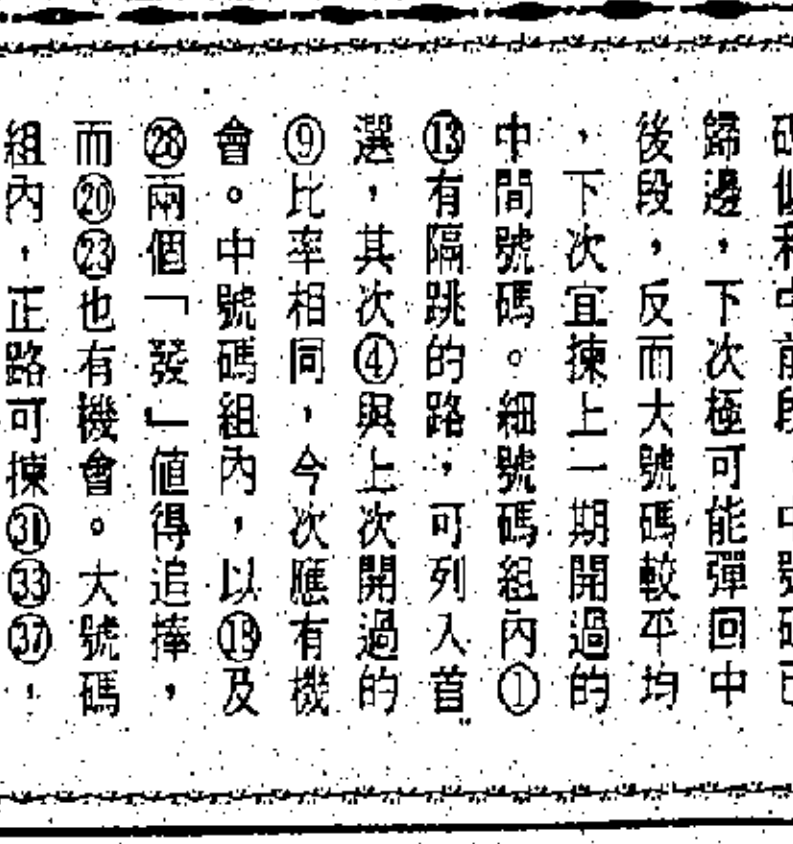 碼偏中前段，中號碼已
歸邊，下次極可能彈回中
後段，反而大號碼較平均
，下次宜揀上一期開過的
中間號碼。細號碼組內①
⑬有隔跳的路，可列入首
選，其次④與上次開過的
⑨比率相同，今次應有機
會。中號碼組內，以⑱及
㉘兩個「發」值得追捧，
而⑳㉓也有機會。大號碼
組內，正路可揀㉛㉝㊲，